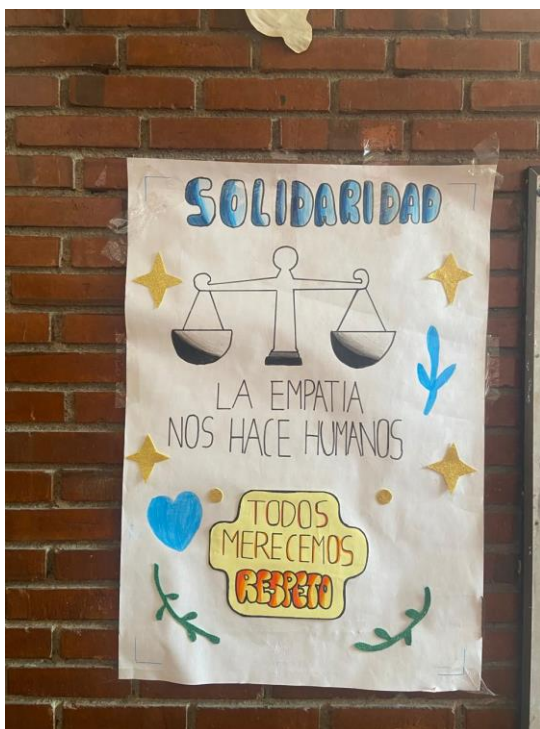 SOLIDARIDAD
LA EMPATIA
NOS HACE HUMANOS
TODOS
MERECEMOS
RESPETO